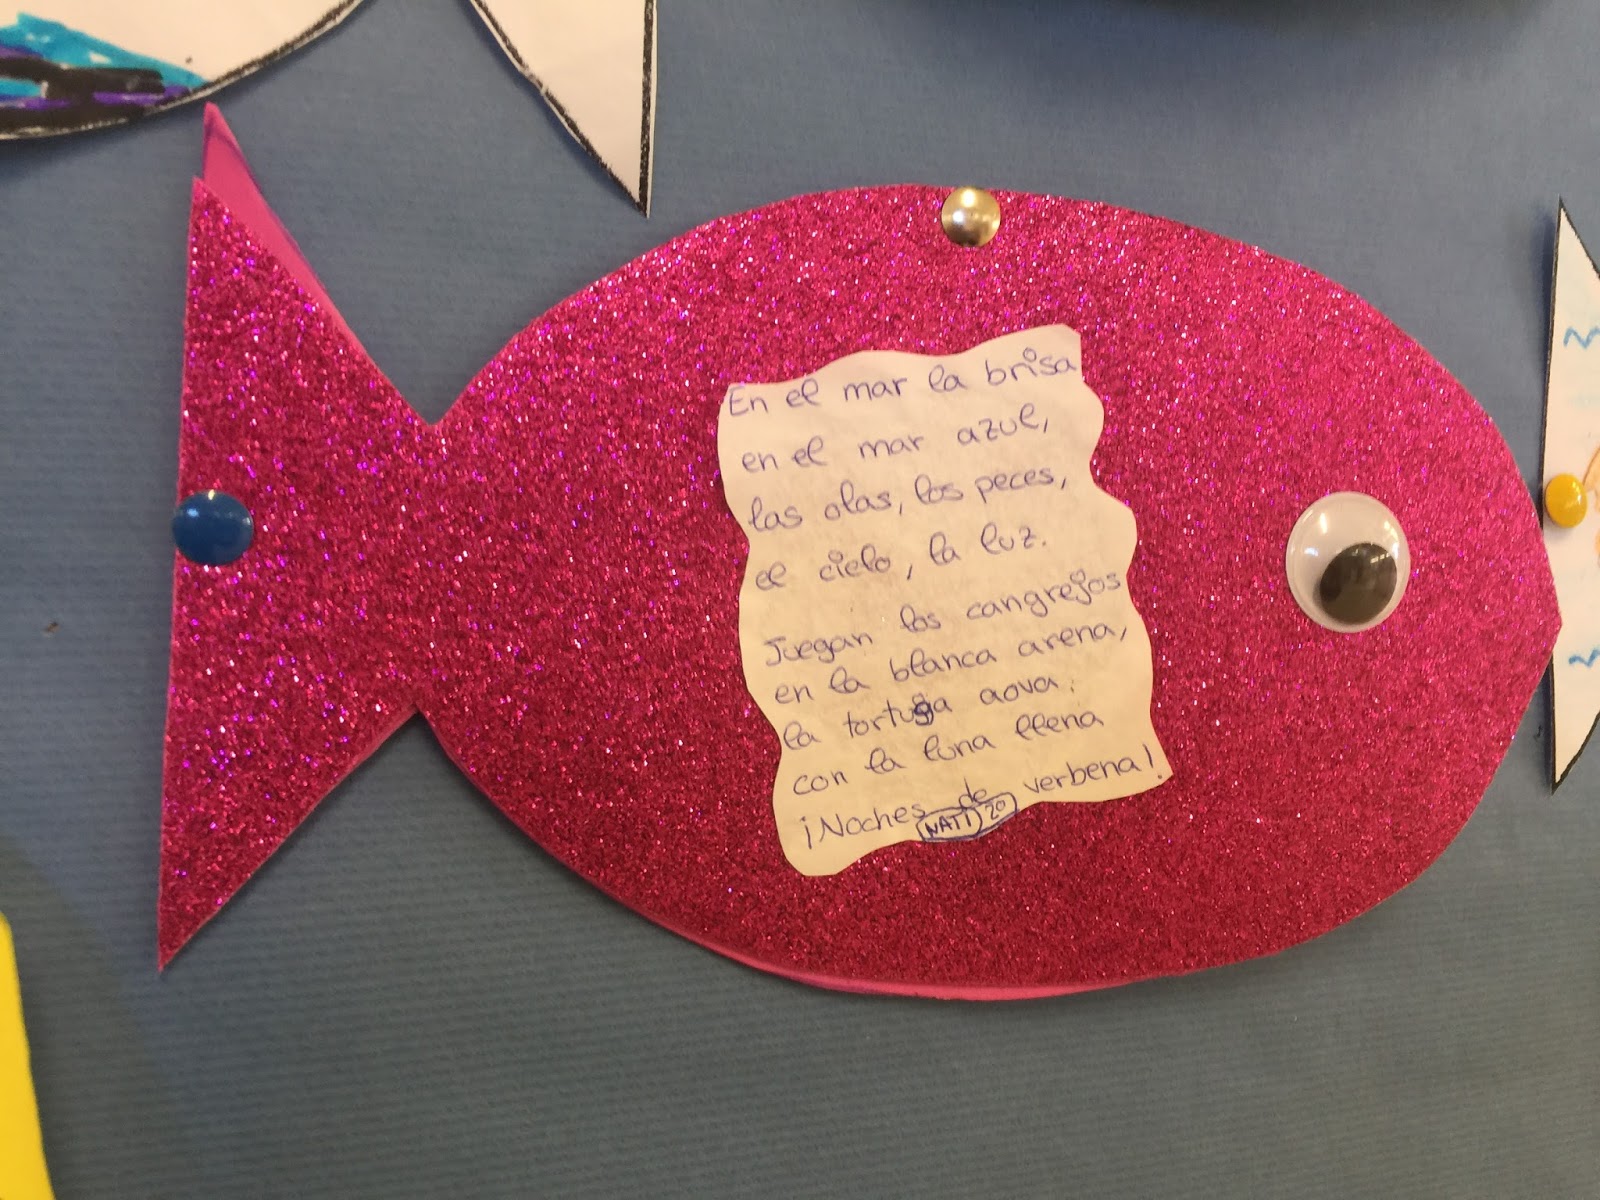 En el mar la brisa
en el mar azul,
las olas, los peces,
el cielo, la luz.
Juegan los cangrejos
en la blanca arena,
la tortuga aova.
con la luna llena
¡Noches de verbena!
NATI 20